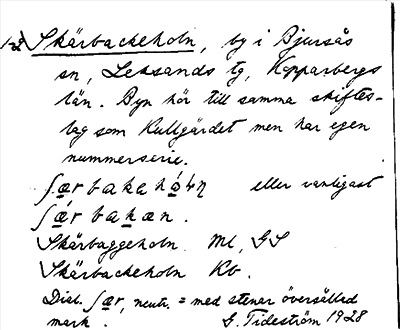 1-2 Skärbackeholn, by i Bjursås
sn, Leksands tg, Kopparbergs
län. Byn hör till samma skiftes-
lag som Kullgärdet men har egen
nummerserie.
ʃærbakahå̀ɫn eller vanligast
ʃǽrbakan.
Skärbaggeholn Ml, GS
Skärbackeholn Kb.
Dial. ʃær, neutr. = med stenar översållad
mark. G. Tideström 1928